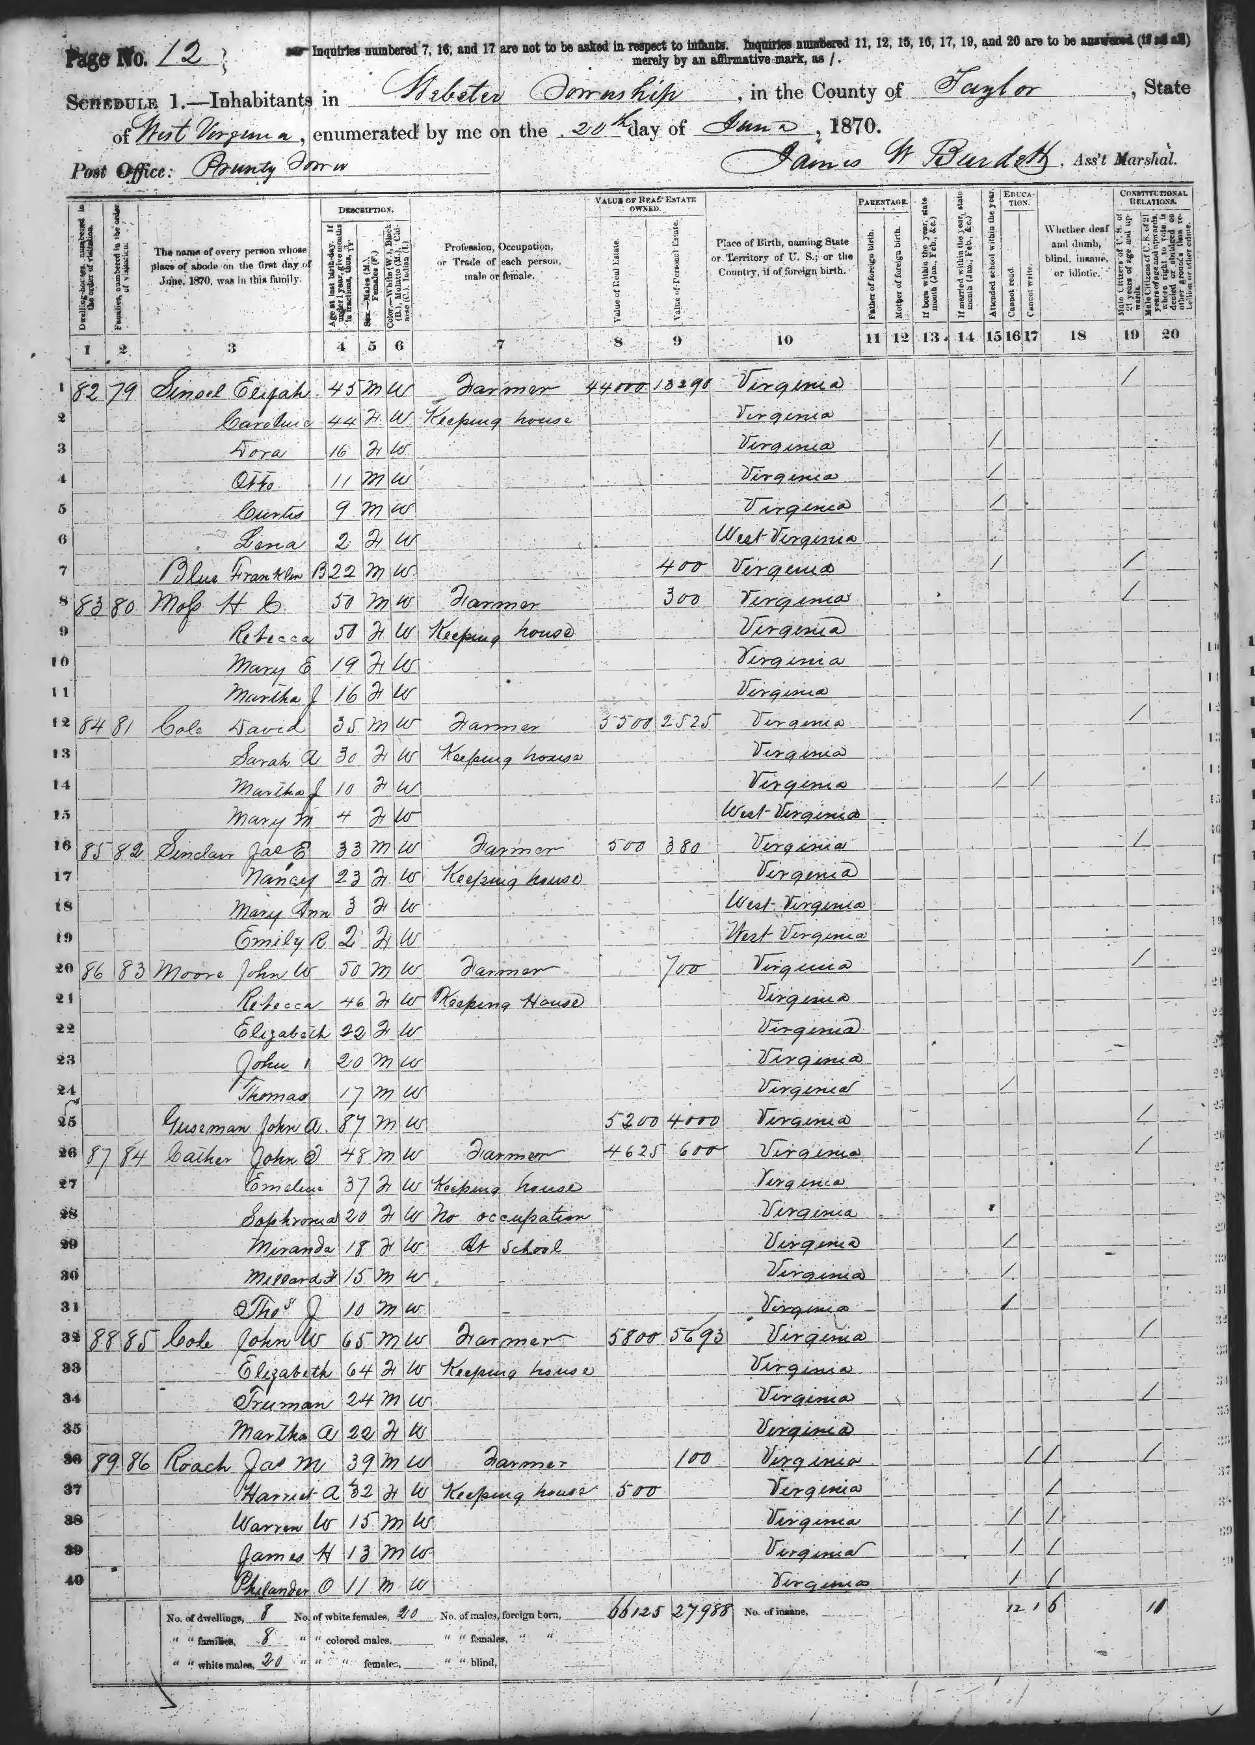 Page No. 12
Inquiries numbered 7, 16, and 17 are not to be asked in respect to infants. Inquiries numbered 11, 12, 15, 16, 17, 19, and 20 are to be answered (if at all)
merely by an affirmative mark, as /.
SCHEDULE 1.—Inhabitants in Webster Township, in the County of Taylor, State
of West Virginia, enumerated by me on the 20th day of June, 1870.
Post Office: Pruntytown
James W Burdett, Ass't Marshal.
Dwelling-houses, numbered in the order of visitation.
Families, numbered in the order of visitation.
The name of every person whose place of abode on the first day of June, 1870, was in this family.
DESCRIPTION.
Age at last birth-day. If under 1 year, give months in fractions, thus, 3/12
Sex.—Males (M.), Females (F.)
Color.—White (W.), Black (B.), Mulatto (M.), Chinese (C.), Indian (I.)
Profession, Occupation, or Trade of each person, male or female.
VALUE OF REAL ESTATE OWNED.
Value of Real Estate.
Value of Personal Estate.
Place of Birth, naming State or Territory of U. S.; or the Country, if of foreign birth.
PARENTAGE.
Father of foreign birth.
Mother of foreign birth.
If born within the year, state month (Jan., Feb., &c.)
If married within the year, state month (Jan., Feb., &c.)
Attended school within the year.
EDUCATION.
Cannot read.
Cannot write.
Whether deaf and dumb, blind, insane, or idiotic.
CONSTITUTIONAL RELATIONS.
Male Citizens of U. S. of 21 years of age and upwards.
Male Citizens of U. S. of 21 years of age and upwards, where right to vote is denied or abridged on other grounds than rebellion or other crime.
1 2 3 4 5 6 7 8 9 10 11 12 13 14 15 16 17 18 19 20
1 82 79 Sinsel Elijah 45 M W Farmer 44000 13290 Virginia /
2 Caroline 44 F W Keeping house Virginia
3 Dora 16 F W Virginia /
4 Otto 11 M W Virginia /
5 Curtis 9 M W Virginia /
6 Lena 2 F W West Virginia
7 Blue Franklin B 22 M W 400 Virginia / /
8 83 80 Moss H C 50 M W Farmer 300 Virginia /
9 Rebecca 50 F W Keeping house Virginia
10 Mary E 19 F W Virginia
11 Martha J 16 F W Virginia
12 84 81 Cole David 35 M W Farmer 5500 2525 Virginia /
13 Sarah A 30 F W Keeping house Virginia
14 Martha J 10 F W Virginia / /
15 Mary M 4 F W West Virginia
16 85 82 Sinclair Jas E 33 M W Farmer 500 380 Virginia /
17 Nancy 23 F W Keeping house Virginia
18 Mary Ann 3 F W West Virginia
19 Emily R 2 F W West Virginia
20 86 83 Moore John W 50 M W Farmer 700 Virginia /
21 Rebecca 46 F W Keeping House Virginia
22 Elizabeth 22 F W Virginia
23 John 20 M W Virginia
24 Thomas 17 M W Virginia /
25 Guseman John A. 87 M W 5200 4000 Virginia /
26 87 84 Cather John T 48 M W Farmer 4625 600 Virginia /
27 Emeline 37 F W Keeping house Virginia
28 Sophronia 20 F W No occupation Virginia
29 Miranda 18 F W At School Virginia /
30 Millard F 15 M W Virginia /
31 Thos J 10 M W Virginia /
32 88 85 Cole John W 65 M W Farmer 5800 5693 Virginia /
33 Elizabeth 64 F W Keeping house Virginia
34 Truman 24 M W Virginia /
35 Martha A 22 F W Virginia
36 89 86 Roach Jas M 39 M W Farmer 100 Virginia / / /
37 Harriet A 32 F W Keeping house 500 Virginia /
38 Warren W 15 M W Virginia / /
39 James H 13 M W Virginia / /
40 Philander O 11 M W Virginia / /
No. of dwellings, 8 No. of white females, 20 No. of males, foreign born, 66125 27988 No. of insane, 12 1 6 10
" " families, 8 " " colored males, " " females, " "
" " white males, 20 " " " females, " " blind,